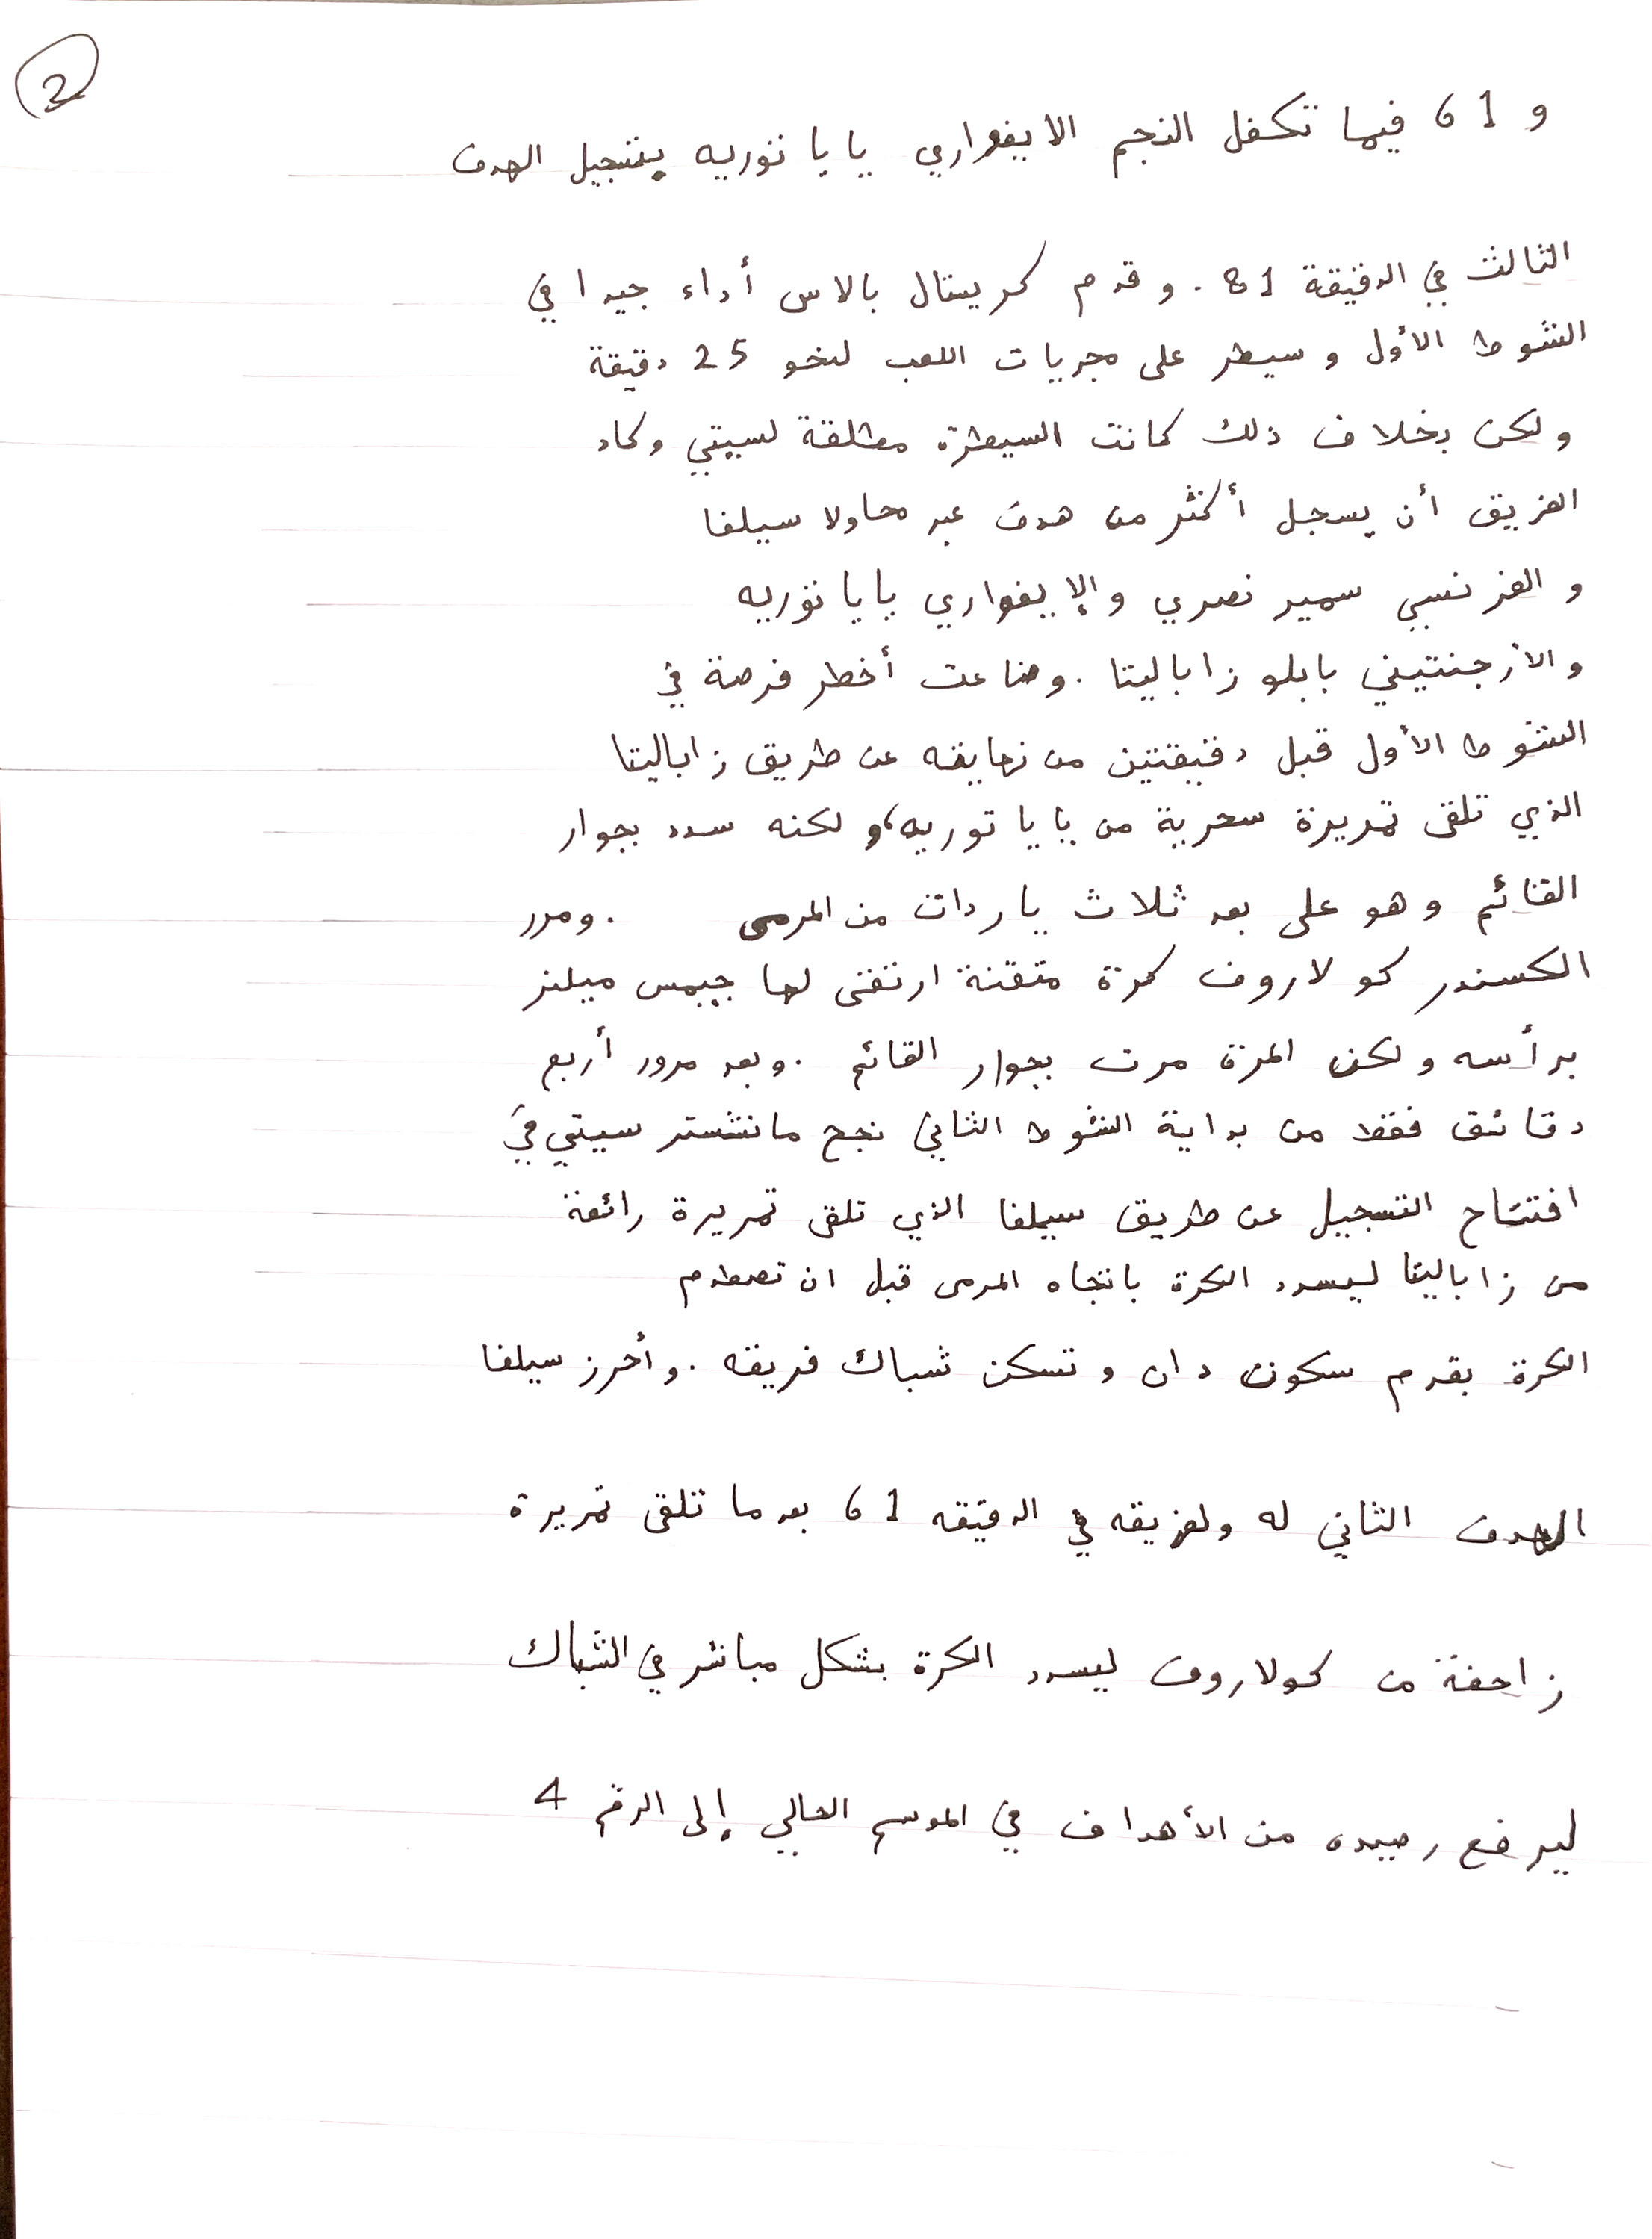 2
و 61 فيما تكفل النجم الايفواري يايا توريه بتسجيل الهدف
الثالث في الدقيقة 81 . و قدم كريستال بالاس أداء جيدا في
الشوط الأول و سيطر على مجريات اللعب لنحو 25 دقيقة
ولكن بخلاف ذلك كانت السيطرة مطلقة لسيتي وكاد
الفريق أن يسجل أكثر من هدف عبر محاولا سيلفا
و الفرنسي سمير نصري والإيفواري يايا توريه
والأرجنتيني بابلو زاباليتا . وضاعت أخطر فرصة في
الشوط الأول قبل دقيقتين من نهايته عن طريق زاباليتا
الذي تلقى تمريرة سحرية من يايا توريه، و لكنه سدد بجوار
القائم وهو على بعد ثلاث ياردات من المرمى . ومرر
الكسندر كولاروف كرة متقنة ارتقى لها جيمس ميلنر
برأسه ولكن المرة مرت بجوار القائم . وبعد مرور أربع
دقائق فقط من بداية الشوط الثاني نجح مانشستر سيتي في
افتتاح التسجيل عن طريق سيلفا الذي تلقى تمريرة رائعة
من زاباليتا ليسدد الكرة باتجاه المرمى قبل ان تصطدم
الكرة بقدم سكوت دان و تسكن شباك فريقه . وأحرز سيلفا
الهدف الثاني له ولفريقه في الدقيقه 61 بعدما تلقى تمريرة
زاحفة من كولاروف ليسدد الكرة بشكل مباشر في الشباك
ليرفع رصيده من الأهداف في الموسم الحالي إلى الرقم 4